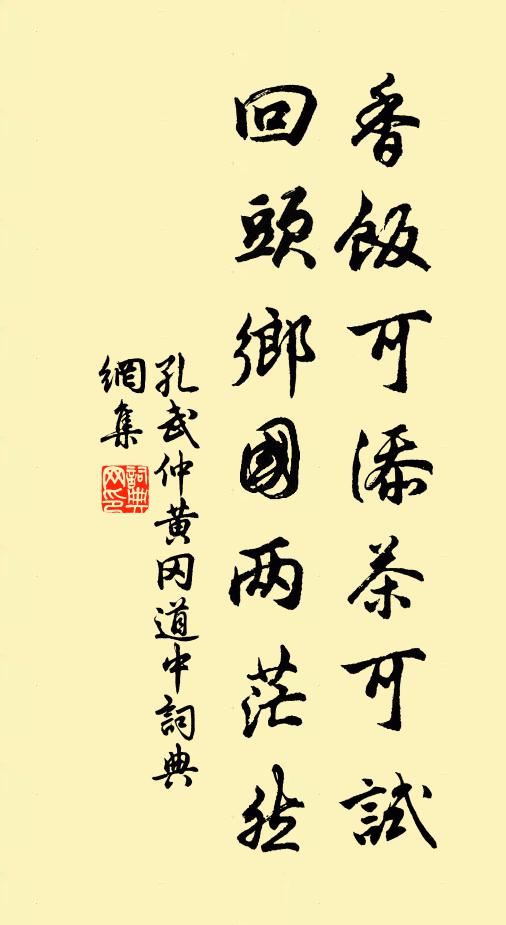 香飯可添茶可試
回頭鄉國两茫然
孔武仲黄冈道中詞典
網集
詞典網印